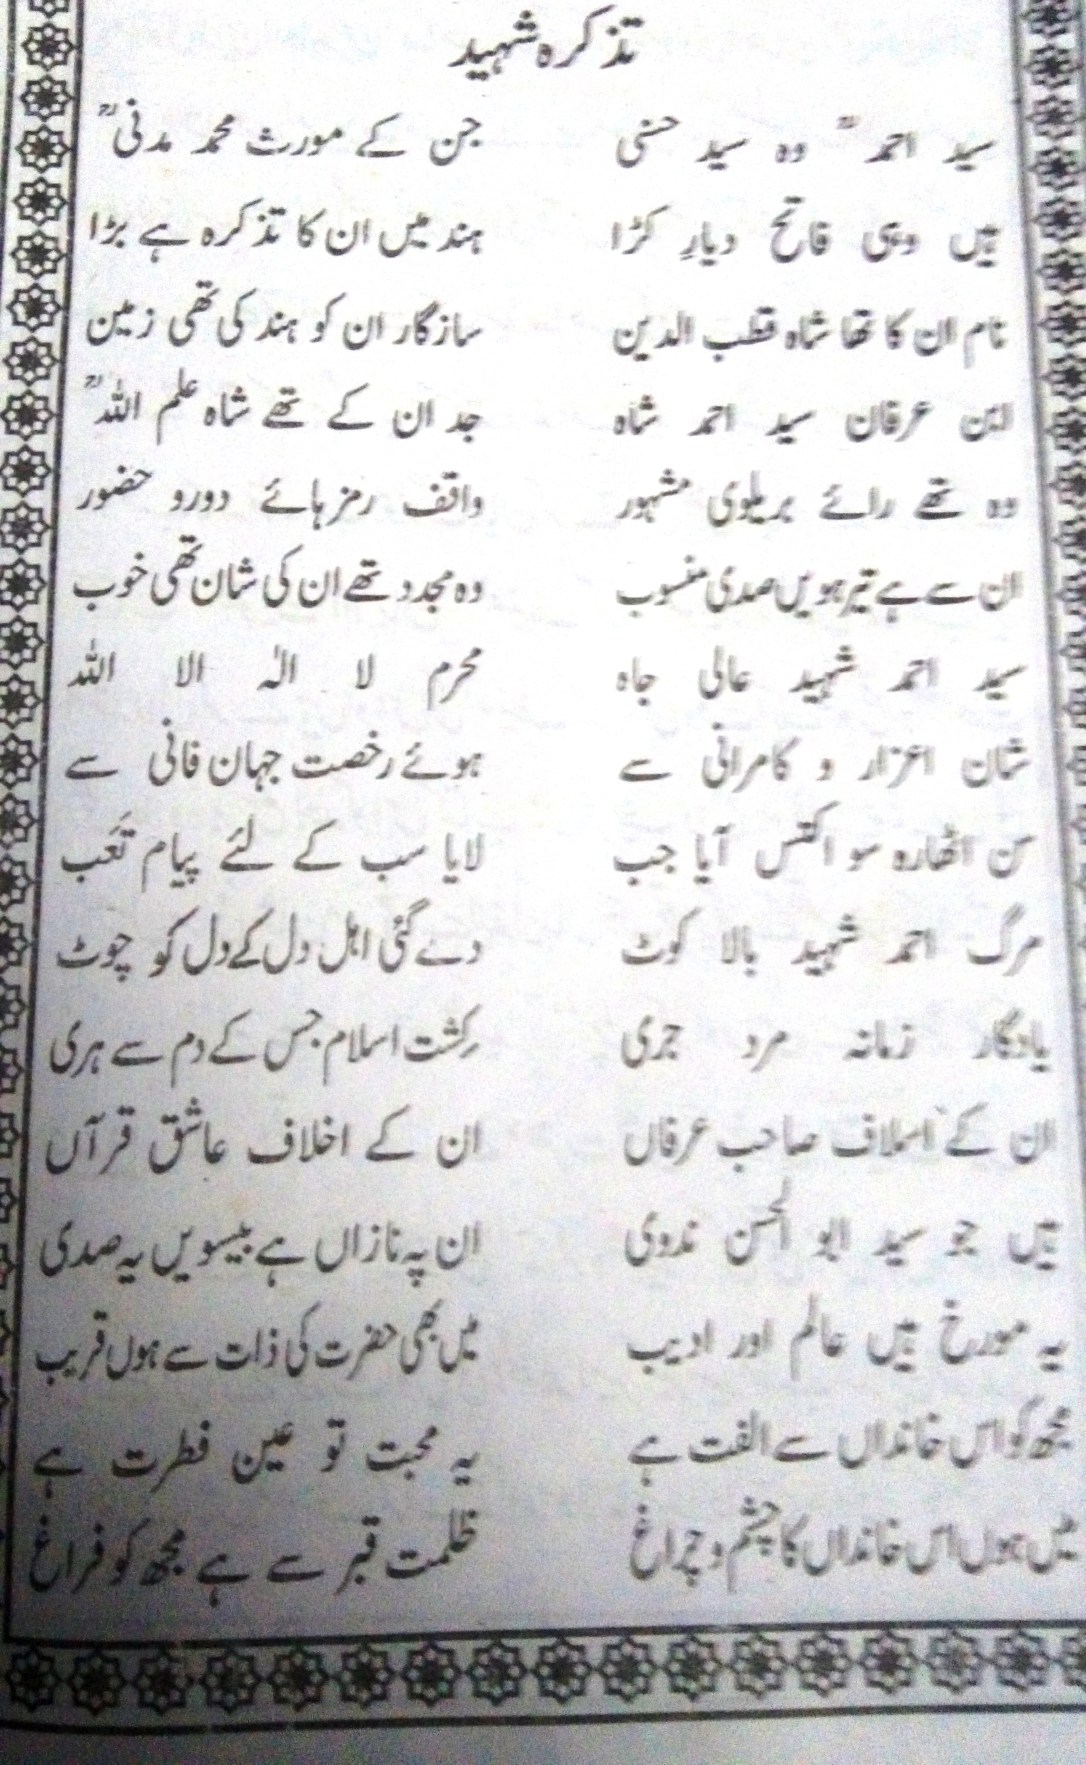 تذکرہ شہید
سید احمدؒ وہ سید حسنی جن کے مورث محمد مدنیؒ
ہیں وہی فاتح دیارِ کڑا ہند میں ان کا تذکرہ ہے بڑا
نام ان کا تھا شاہ قطب الدین سازگار ان کو ہند کی تھی زمین
ابن عرفان سید احمد شاہ جد ان کے تھے شاہ علم اللہؒ
وہ تھے رائے بریلوی مشہور واقف رمزہائے دورو حضور
ان سے ہے تیرہویں صدی منسوب وہ مجدد تھے ان کی شان تھی خوب
سید احمد شہید عالی جاہ محرم لا الٰہ الا اللہ
شان اعزار و کامرانی سے ہوئے رخصت جہان فانی سے
سن اٹھارہ سو اکتس آیا جب لایا سب کے لئے پیام تَعَب
مرگ احمد شہید بالا کوٹ دے گئی اہل دل کے دل کو چوٹ
یادگار زمانہ مرد جری کِشت اسلام جس کے دم سے ہری
ان کے اسلاف صاحب عرفاں ان کے اخلاف عاشق قرآں
ہیں جو سید ابو الحسن ندوی ان پہ نازاں ہے بیسویں یہ صدی
یہ مورخ ہیں عالم اور ادیب میں بھی حضرت کی ذات سے ہوں قریب
مجھ کو اس خانداں سے الفت ہے یہ محبت تو عین فطرت ہے
میں ہوں اس خانداں کا چشم و چراغ ظلمت قبر سے ہے مجھ کو فراغ